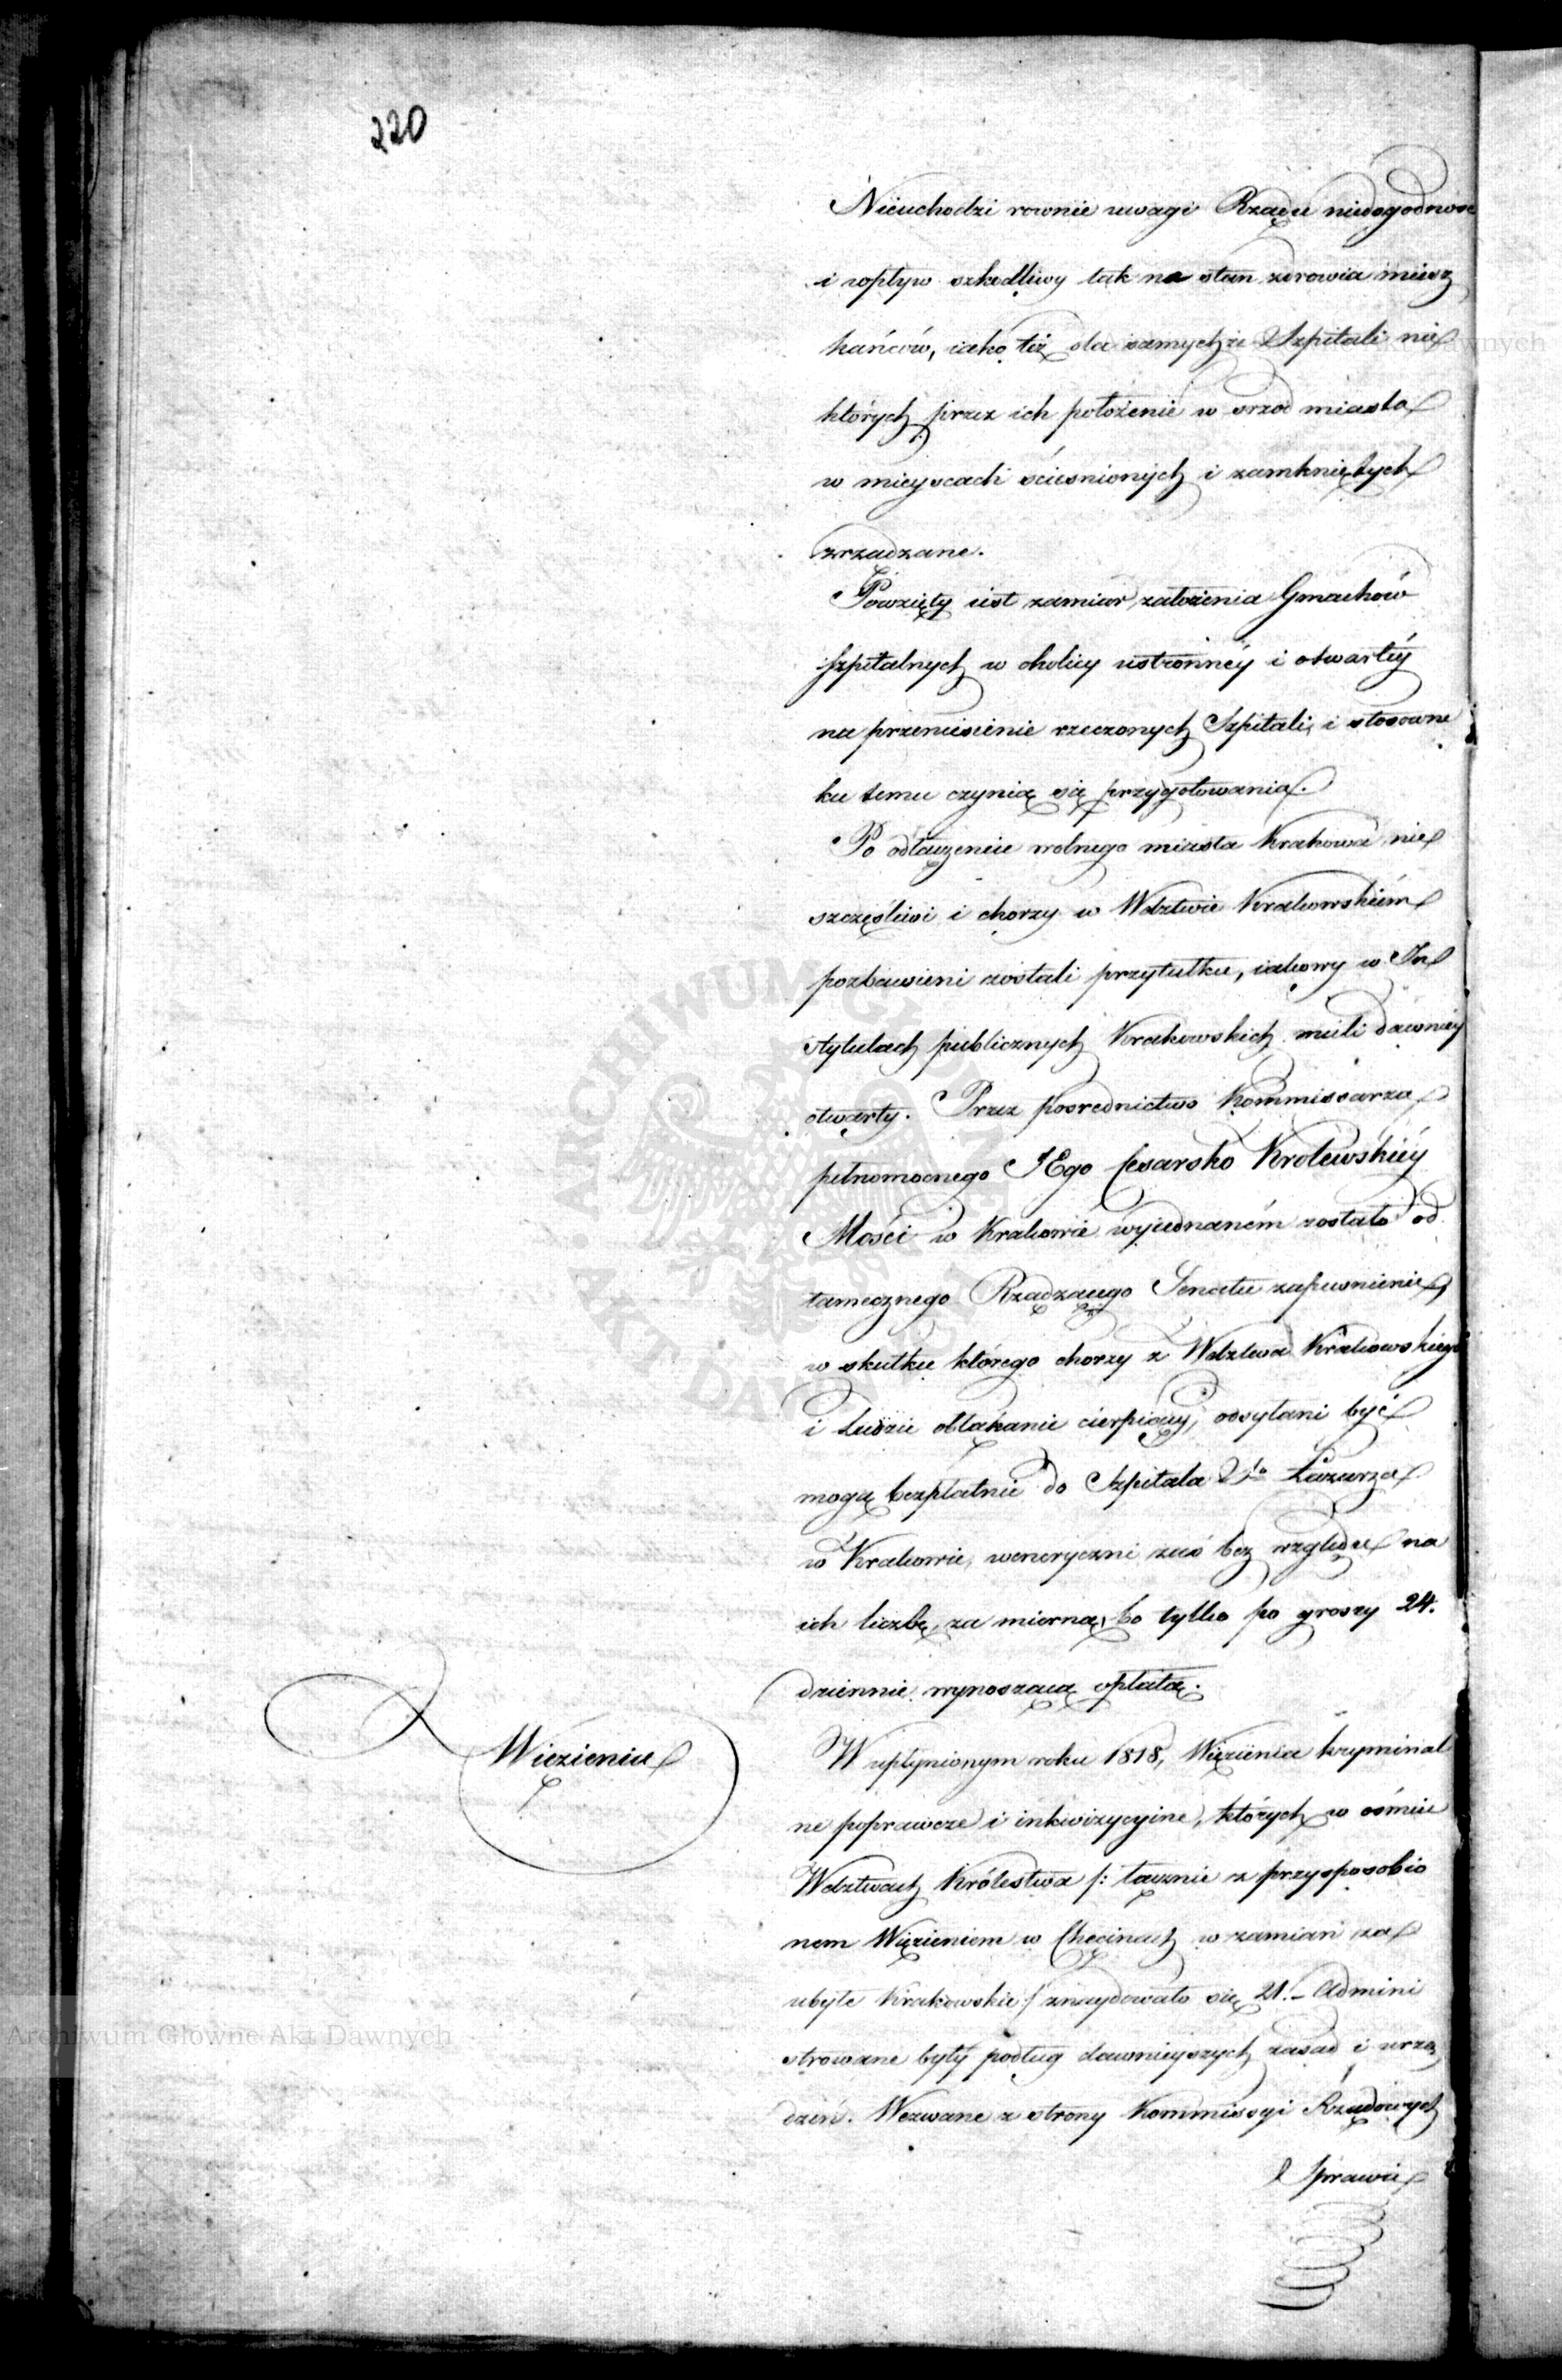 220
Nieuchodzi rownie uwagi Rządu niedogodnosc
i wpływ szkodliwy tak na stan zdrowia miesz
kańców, iako też dla samychże Szpitali nie
których przez ich położenie w srzod miasta
w mieyscach ściesnionych i zamkniętych
zrządzane.
Powzięty iest zamiar założenia Gmachów
szpitalnych w okolicy ustronnéy i otwartéy
na przeniesienie rzeczonych Szpitali, i stosowne
ku temu czynią się przygotowania.
Po odłączeniu wolnego miasta Krakowa nie
szczęśliwi i chorzy w Wdztwie Krakowskiém
pozbawieni zostali przytułku, iakowy w In
stytutach publicznych Krakowskich mieli dawniéy
otwarty. Przez posrednictwo Kommissarza
pełnomocnego JEgo Cesarsko Królewskiéy
Mości w Krakowie wyiednaném zostało od
tamecznego Rządzącego Senatu zapewnienie,
w skutku którego chorzy z Wdztwa Krakowskiego
i ludzie obłąkanie cierpiący, odsyłani być
mogą bezpłatnie do Szpitala Sgo Łazarza
w Krakowie, weneryczni zaś bez względu na
ich liczbę, za mierną, bo tylko po groszy 24.
dziennie wynoszącą opłatą.
Więzienia
W upłynionym roku 1818, Więzienia kryminal
ne poprawcze i inkwizycyine, których w ośmiu
Wdztwach Królestwa /: łącznie z przysposobio
nem Więzieniem w Chęcinach w zamian za
ubyłe Krakowskie :/ znaydowało się 21. – Admini
strowane były podług dawnieyszych zasad i urzą
dzeń. Wezwane z strony Kommissyi Rządowych
Sprawie